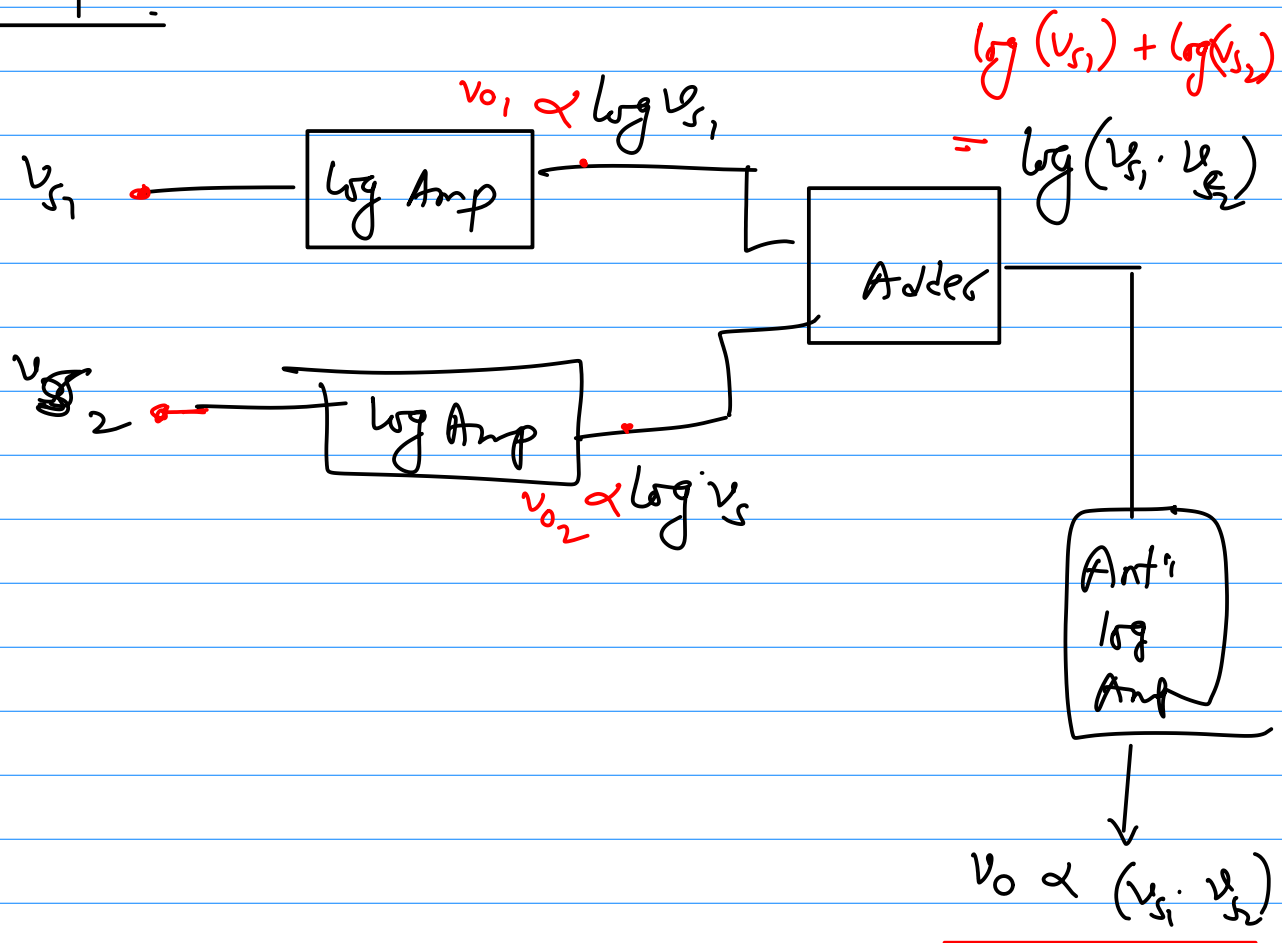 log (v_s1) + log(v_s2)
v_o1 ∝ log v_s1
= log (v_s1 . v_s2)
v_s1
Log Amp
Adder
v_s2
Log Amp
v_o2 ∝ log v_s
Anti
log
Amp
v_o ∝ (v_s1 . v_s2)